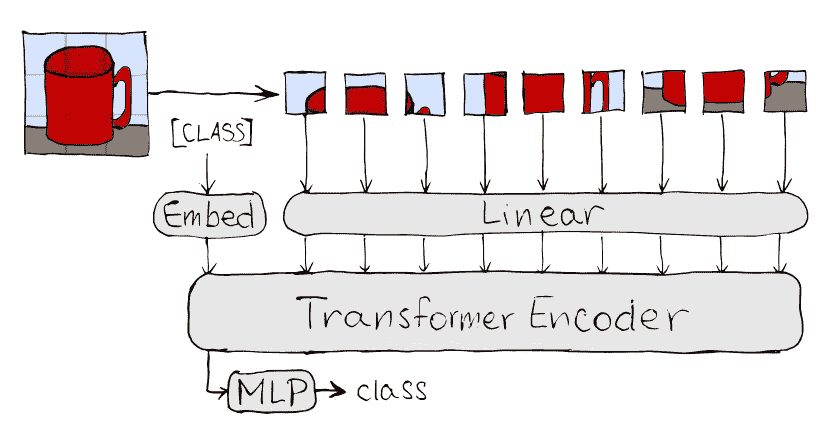 [CLASS]
Embed
Linear
Transformer Encoder
MLP
class